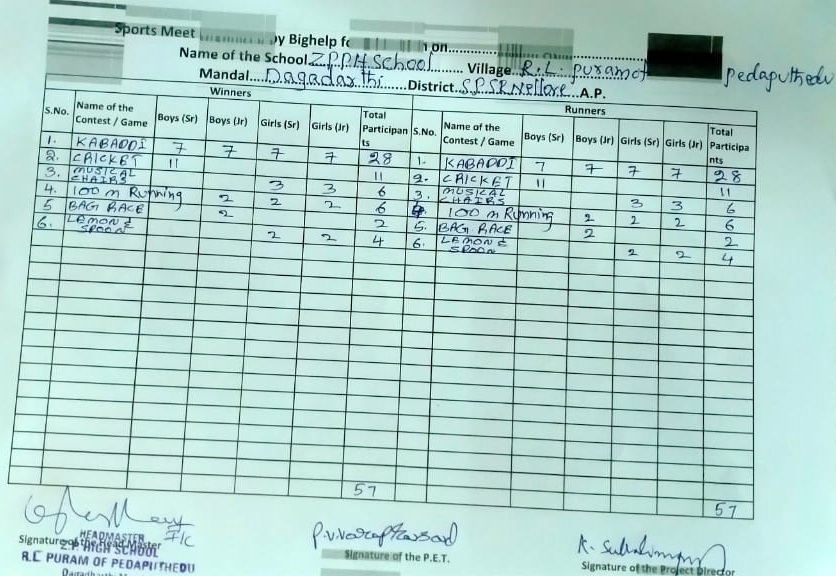 Sports Meet by Bighelp on
Name of the School Z.P.P.H School Village R.L. puram of pedaputhedu
Mandal Dagadarthi District S.P.S.R Nellore A.P.
Winners Runners
S.No. Name of the Contest / Game Boys (Sr) Boys (Jr) Girls (Sr) Girls (Jr) Total Participants S.No. Name of the Contest / Game Boys (Sr) Boys (Jr) Girls (Sr) Girls (Jr) Total Participants
1. KABADDI 7 7 7 7 28 1. KABADDI 7 7 7 7 28
2. CRICKET 11 11 2. CRICKET 11 11
3. MUSICAL CHAIRS 3 3 6 3. MUSICAL CHAIRS 3 3 6
4. 100 m Running 2 2 2 6 4. 100 m Running 2 2 2 6
5 BAG RACE 2 2 5. BAG RACE 2 2
6. LEMON & SPOON 2 2 4 6. LEMON & SPOON 2 2 4
57 57
HEADMASTER F/C
Signature of the Head Master Signature of the P.E.T. Signature of the Project Director
Z.P. HIGH SCHOOL
R.C PURAM OF PEDAPUTHEDU